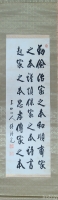 勤儉治家之本和順齊家
之本謹慎保家之本詩書
起家之本忠孝傳家之本